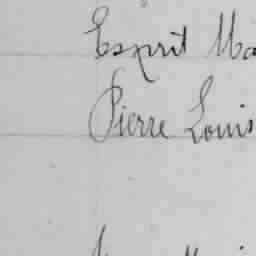 Esprit Ma
Pierre Louis